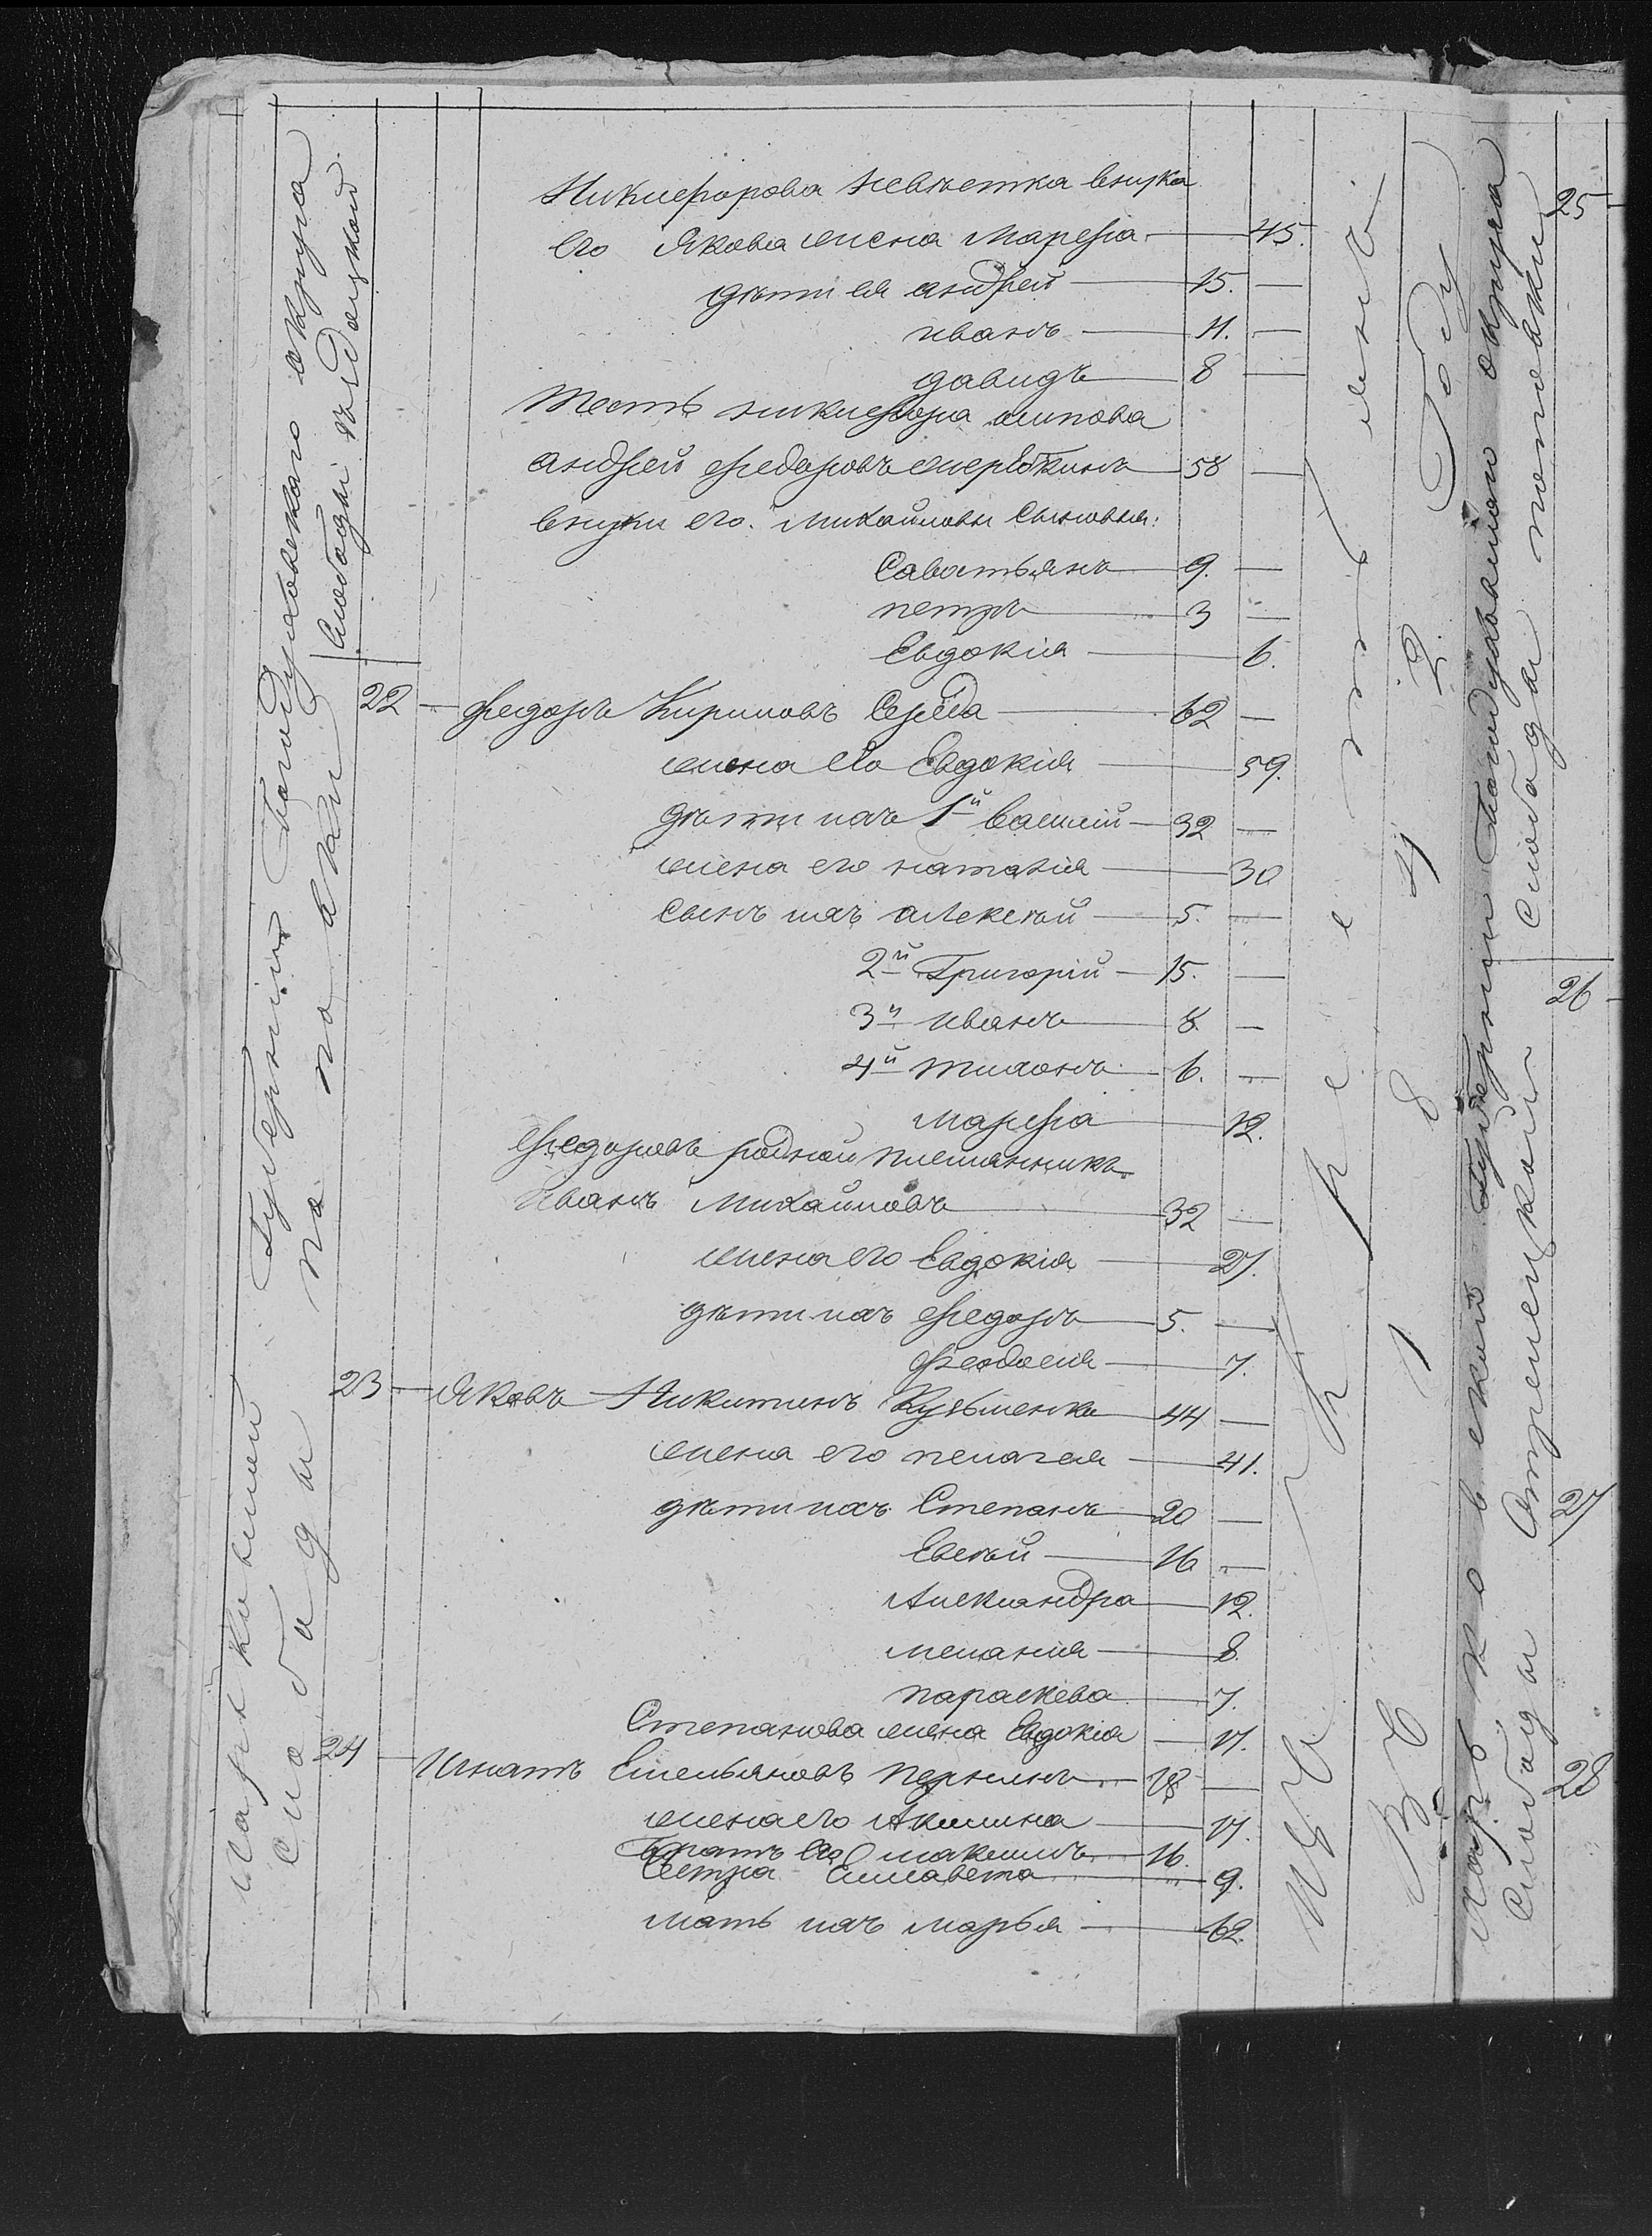 Никиефорова невѣстка внука
Его Якова жена Марефа — 45.
дѣти ея андрей — 15. —
иванъ — 11. —
давидъ — 8 —
Тесть никиефора
андрей федоровъ — 58 —
внуки его Михайловы сыновья:
Саватьянъ — 9. —
петръ — 3 —
Евдокия — 6.
22 — федоръ Кириловъ Середа — 62 —
жена Его Евдокия — 59.
дѣти ихъ 1й Василий — 32 —
жена его наталия — 30
Сынъ ихъ алексѣй — 5. —
2й Григорий — 15. —
3й иванъ — 8. —
4й тихонъ — 6. —
марефа — 12.
федоровъ родной племянникъ
Иванъ Михайловъ — 32 —
жена его Евдокия — 27.
дѣти ихъ федоръ — 5. —
феодосия — 7.
23 — Яковъ Никитинъ Кузьменко — 44 —
жена его пелагея — 41.
дѣти ихъ Степанъ — 20 —
Евсѣй — 16 —
Александра — 12.
мелания — 8.
параскева — 7.
Степанова жена Евдокия — 17.
24 — Игнатъ Емельяновъ — 18 —
жена его Акилина — 17.
Братъ Его максимъ — 16.
Сестра Елисавета — 9.
мать ихъ марья — 62.
Харьковской Губернии округа
Слободы
Слободы
В 1842 Году
Харьковской Губернии округа
Слободы Слободы
25
26
27
28